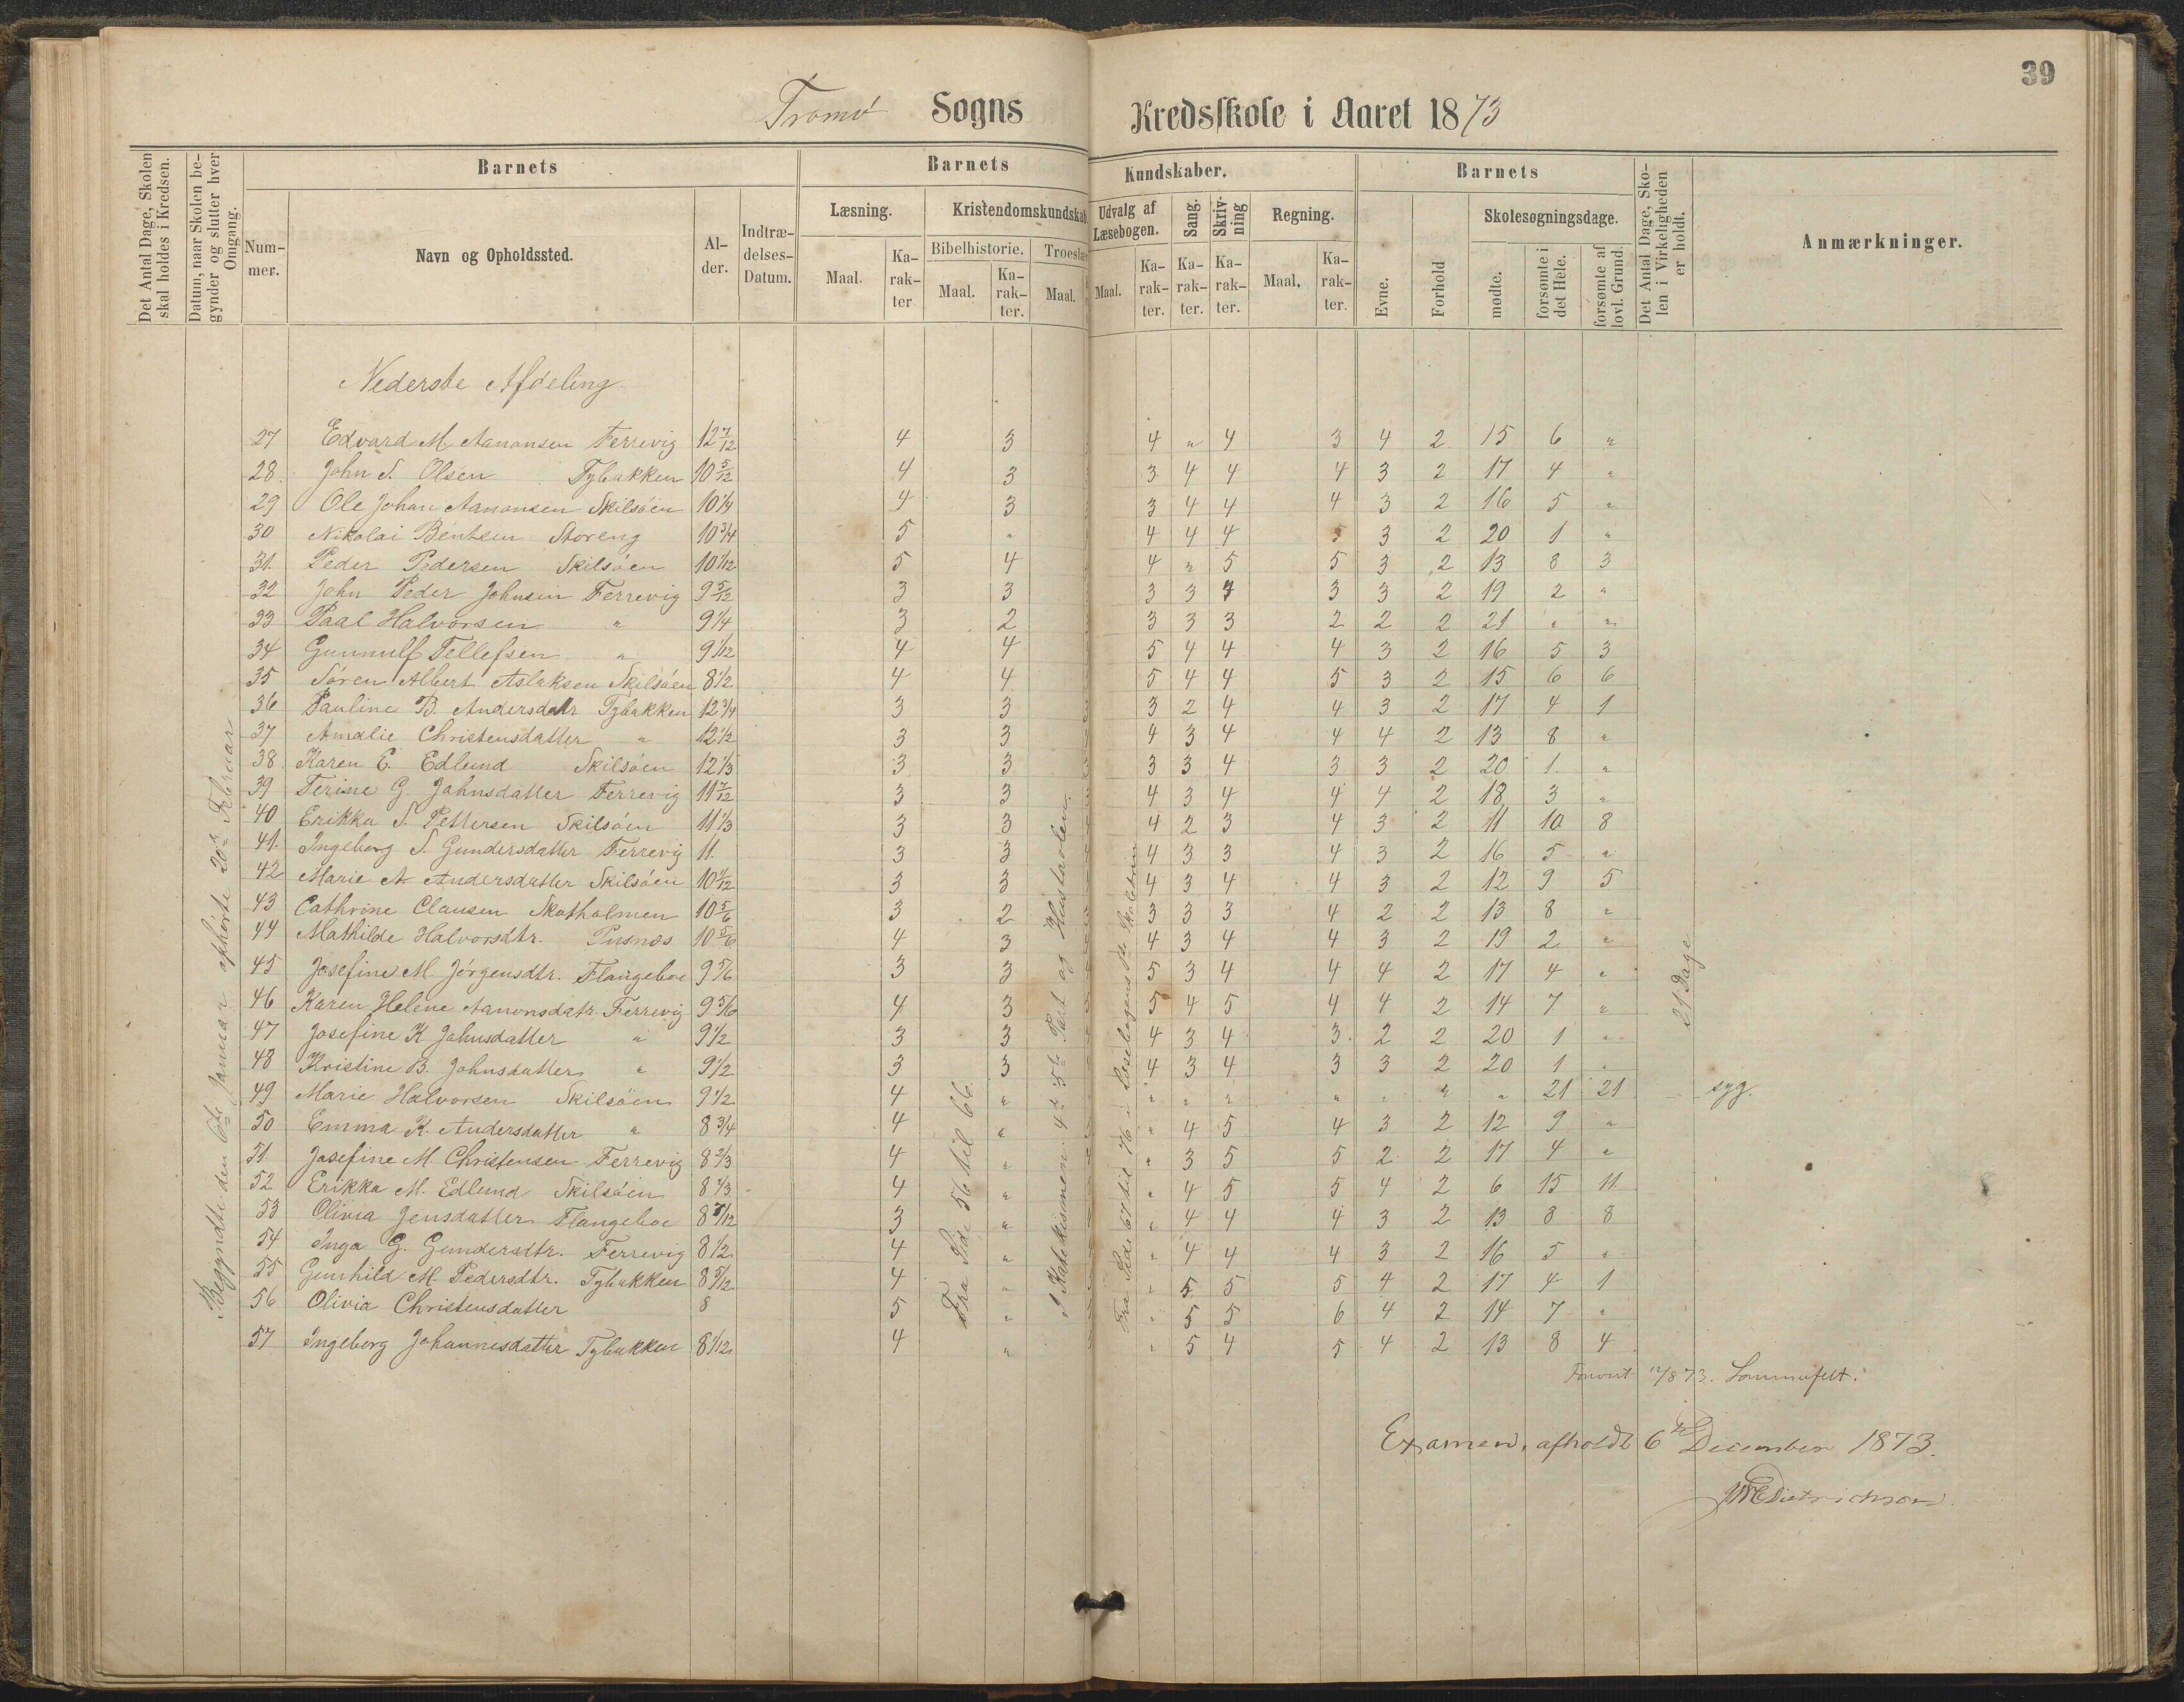 39
Tromø Sogns Kredsskole i Aaret 1873
Det Antal Dage, Skolen skal holdes i Kredsen.
Datum, naar Skolen begynder og slutter hver Omgang.
Barnets
Barnets
Kundskaber.
Barnets
Det Antal Dage, Skolen i Virkeligheden er holdt.
Anmærkninger.
Nummer.
Navn og Opholdssted.
Alder.
Indtrædelses-Datum.
Læsning.
Kristendomskundskab
Udvalg af Læsebogen.
Sang.
Skrivning
Regning.
Evne.
Forhold
Skolesøgningsdage.
Bibelhistorie.
Troeslær
Maal.
Karakter
Maal.
Karakter.
Maal.
Maal.
Karakter.
Karakter.
Karakter.
Maal.
Karakter.
mødte.
forsømte i det Hele.
forsømte af lovl. Grund.
Nederste Afdeling
27 Edvard M. Aanonsen Færrevig 12 7/12 4 3 4 " 4 3 4 2 15 6 "
28. John S. Olsen Tybakken 10 5/12 4 3 3 4 4 4 3 2 17 4 "
29 Ole Johan Aanonsen Skilsøen 10 1/4 4 3 3 4 4 4 3 2 16 5 "
30 Nikolai Bentsen Storeng 10 3/4 5 " 4 4 4 5 3 2 20 1 "
31. Peder Pedersen Skilsøen 10 1/12 5 4 4 " 5 5 3 2 13 8 3
32 John Peder Johnsen Færrevig 9 5/12 3 3 3 3 3 3 3 2 19 2 "
33 Paal Halvorsen " 9 1/4 3 2 3 3 3 2 2 2 21 " "
34 Gunnulf Tellefsen " 9 1/12 4 4 5 4 4 4 3 2 16 5 3
35 Søren Albert Aslaksen Skilsøen 8 1/2 4 4 5 4 4 5 3 2 15 6 6
36 Pauline B. Andersdatr Tybakken 12 3/4 3 3 3 2 4 4 3 2 17 4 1
37 Amalie Christensdatter " 12 1/2 3 3 4 3 4 4 4 2 13 8 "
38. Karen E. Edlund Skilsøen 12 1/3 3 3 3 3 4 3 3 2 20 1. "
39 Terine G. Johnsdatter Færrevig 11 7/12 3 3 4 3 4 4 4 2 18 3 "
40 Erikka S. Pettersen Skilsøen 11 1/3 3 3 4 2 3 4 3 2 11 10 8
41. Ingeborg S. Gundersdatter Færrevig 11. 3 3 4 3 3 4 3 2 16 5 "
42 Marie A. Andersdatter Skilsøen 10 11/12 3 3 4 3 4 4 3 2 12 9 5
43 Cathrine Clausen Skotholmen 10 5/6 3 2 3 3 3 4 2 2 13 8 "
44 Mathilde Halvorsdtr. Pusnæs 10 5/6 4 3 4 3 4 4 3 2 19 2 "
45 Josefine M. Jørgensdtr. Flangeboe 9 5/6 3 3 5 3 4 4 4 2 17 4 "
46 Karen Helene Aanonsdatr. Færrevig 9 5/6 4 3 5 4 5 4 4 2 14 7 "
47 Josefine K Johnsdatter " 9 1/2 3 3 4 3 4 3. 2 2 20 1 "
48 Kristine B. Johnsdatter " 9 1/2 3 3 4 3 4 3 3 2 20 1 "
49 Marie Halvorsen Skilsøen 9 1/2 4 " " " " " " " " 21 21 syg.
50 Emma K. Andersdatter " 8 3/4 4 " " 4 5 4 3 2 12 9 "
51. Josefine M. Christensen Færrevig 8 2/3 4 " " 3 5 5 2 2 17 4 "
52 Erikka M. Edlund Skilsøen 8 2/3 4 " " 4 5 5 4 2 6 15 11
53 Olivia Jensdatter Flangeboe 8 7/12 3 " " 4 4 4 3 2 13 8 8
54 Inga G. Gundersdtr. Færrevig 8 1/2 4 " " 4 4 4 3 2 16 5 "
55 Gunhild M. Pedersdtr. Tybakken 8 5/12 4 " " 5 5 5 4 2 17 4 1
56 Olivia Christensdatter 8 5 " " 5 5 6 4 2 14 7 "
57 Ingeborg Johannesdatter Tybakken 8 1/12 4 " " 5 4 5 4 2 13 8 4
Begyndte den 6te Januar ophørte 20de Februar
Fra Side 56 til 66.
I Katekismen 4de 5te Part og Hustavlen.
Fra Side 67 til 76 i Læsebogens
21 Dage
12/8 73. Sommerfelt.
Examen, afholdt 6te December 1873.
Dietrichson.